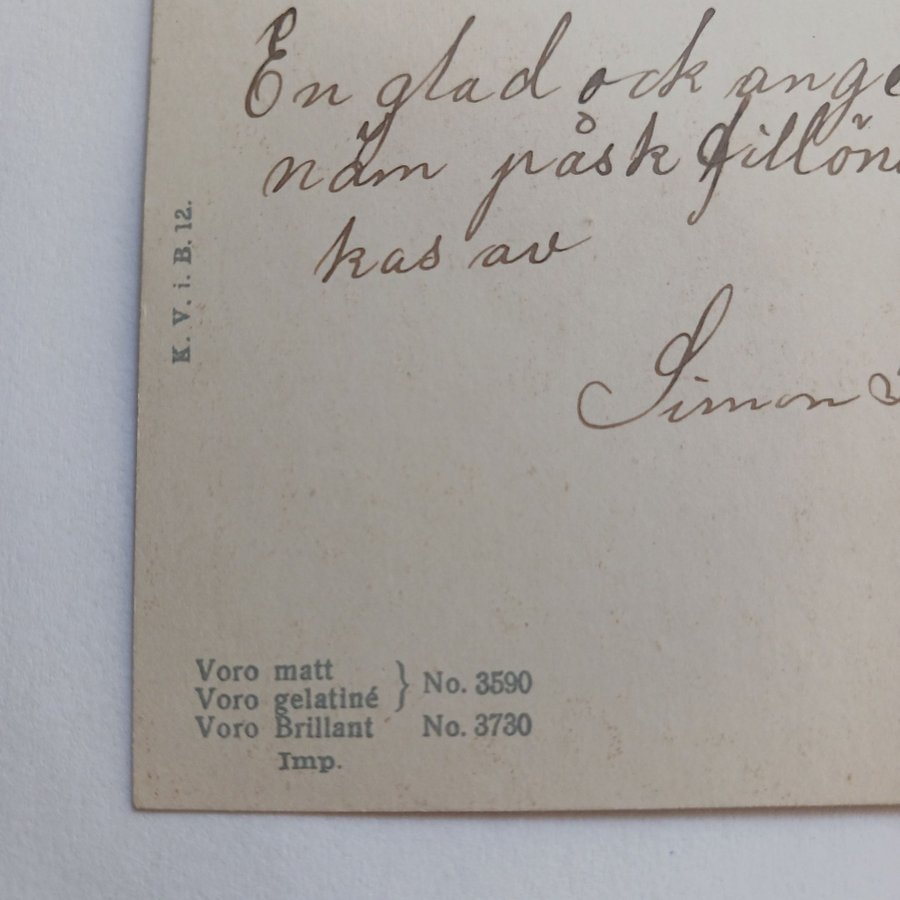 En glad ock ange
näm påsk tillöns
kas av
Simon
K. V. i. B. 12.
Voro matt
Voro gelatiné } No. 3590
Voro Brillant No. 3730
Imp.